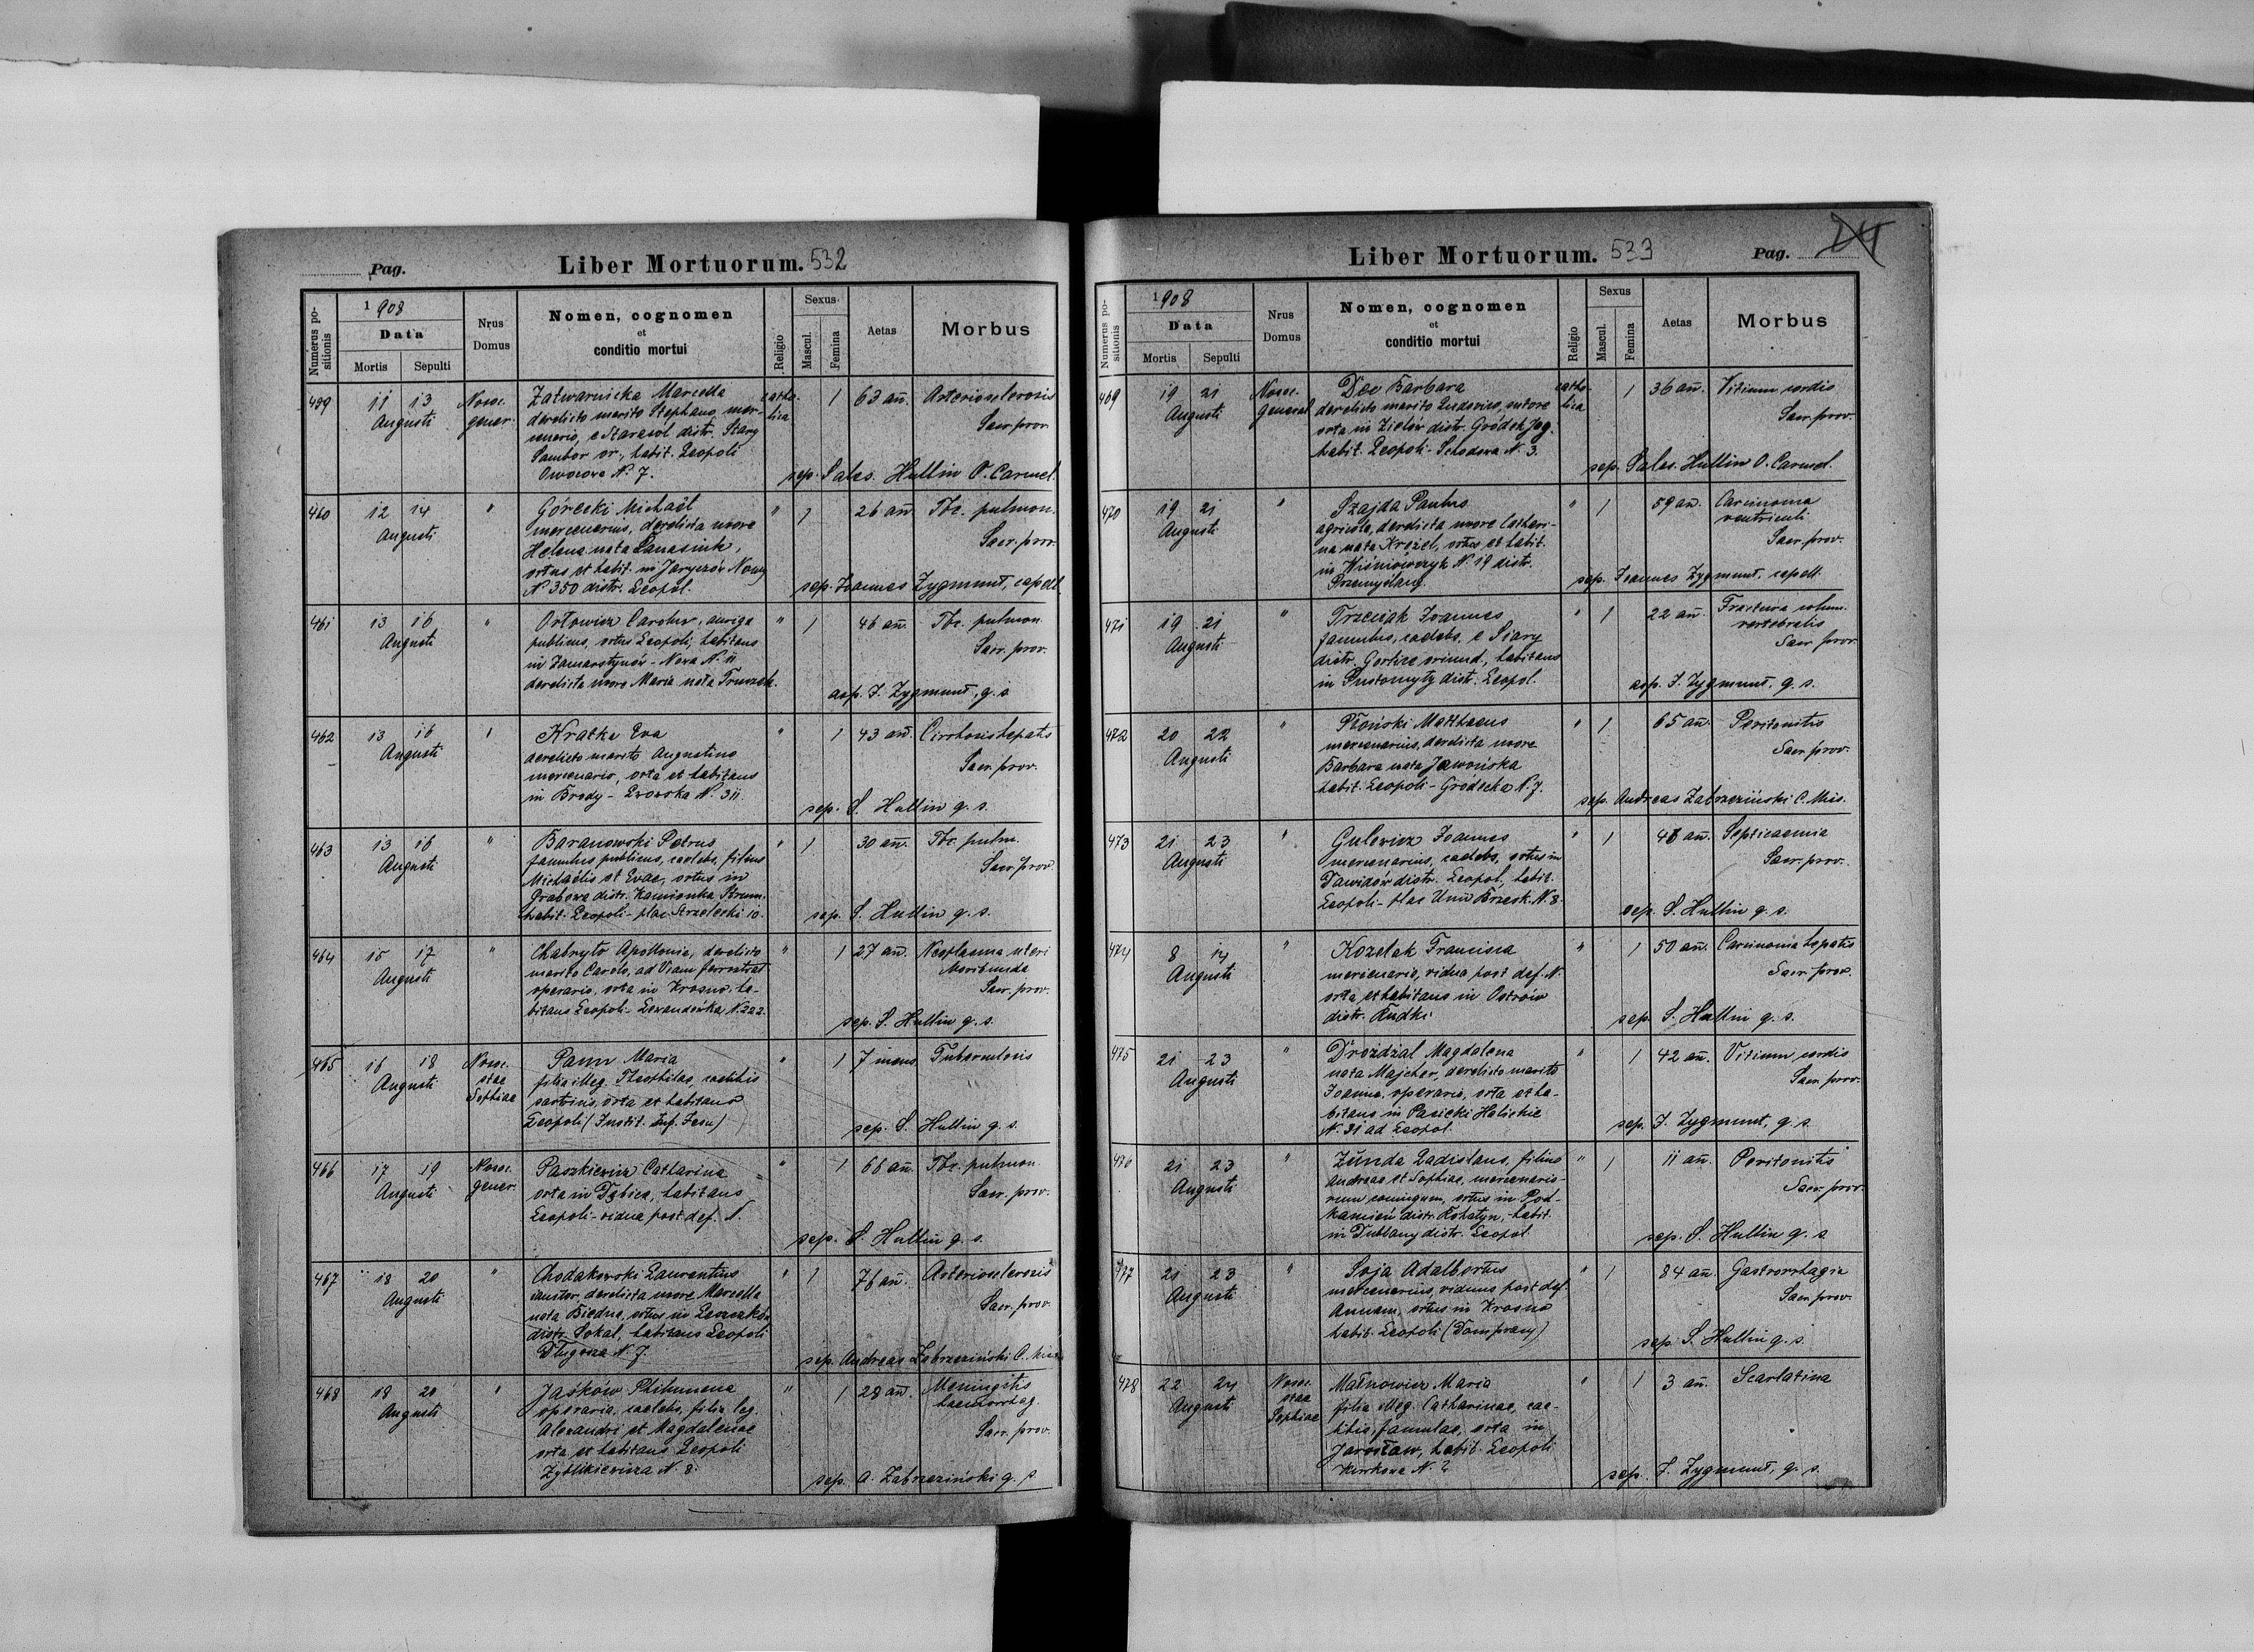 Pag.
Liber Mortuorum. 532
Numerus po-
sitionis
1908
Data
Mortis
Sepulti
Nrus
Domus
Nomen, cognomen
et
conditio mortui
Religio
Sexus
Mascul.
Femina
Aetas
Morbus
459 11 13 Augusti
Nosoc.
gener.
Zatwarnicka Marcella
derelicto marito Stephano, mer-
cenario, e Starasol distr. Stary
Sambor or., habit. Leopoli
Owocowa N. 7.
catho-
lica
1 63 añ. Arteriosclerosis
Sacr. prov.
sep. Sales. Hullin O. Carmel.
460 12 14 Augusti "
Górecki Michaël
mercenarius, derelicta uxore
Helena nata Panasiuk,
ortus et habit. in Jaryczów Nowy
N 350 distr. Leopol.
" 1 26 añ. Tbc. pulmon.
Sacr. prov.
sep. Joannes Zygmunt, capell.
461 13 16 Augusti "
Orłowicz Carolus, auriga
publicus, ortus Leopoli, habitans
in Zamarstynów - Nowa N. 11
derelicta uxore Maria nata
" 1 46 añ. Tbc. pulmon.
Sacr. prov.
sep. J. Zygmunt, q. s.
462 13 16 Augusti "
Kratke Eva
derelicto marito Augustino
mercenario, orta et habitans
in Brody - Lwowska N. 311.
" 1 43 añ. Cirrhosis hepatis
Sacr. prov.
sep. S. Hullin q. s.
463 13 16 Augusti "
Baranowski Petrus
famulus publicus, caelebs, filius
Michaëlis et Evae, ortus in
Grabowa distr. Kamionka Strum.
habit. Leopoli - plac Strzelecki 10.
" 1 30 añ. Tbc. pulm.
Sacr. prov.
sep. S. Hullin q. s.
464 15 17 Augusti "
Chabryło Apollonia, derelicto
marito Carolo, ad Viam ferrostrat.
operario, orta in Krosno, ha-
bitans Leopoli - Lewandówka N. 222.
" 1 27 añ. Neoplasma uteri
Moribunda
Sacr. prov.
sep. S. Hullin q. s.
465 16 18 Augusti
Nosoc.
stae
Sophiae
Pann Maria
filia illeg. Theophilae, caelibis
sartricis, orta et habitans
Leopoli (Instit. Inf. Jesu)
" 1 7 mens. Tuberculosis
sep. S. Hullin q. s.
466 17 19 Augusti
Nosoc.
gener.
Paszkiewicz Catharina
orta in Dębica, habitans
Leopoli - vidua post def. N.
" 1 66 añ. Tbc. pulmon.
Sacr. prov.
sep. S. Hullin q. s.
467 18 20 Augusti "
Chodakowski Laurentius
derelicta uxore Marcella
nata Biedna, ortus in
distr. Sokal, habitans Leopoli
Długosza N. 7.
" 1 76 añ. Arteriosclerosis
Sacr. prov.
sep. Andreas Zabrzeziński C. Miss.
468 18 20 Augusti "
Jaśków Philumena
operaria, caelebs, filia leg.
Alexandri et Magdalenae
orta et habitans Leopoli
Zyblikiewicza N. 8.
" 1 28 añ. Meningitis
haemorrhag.
Sacr. prov.
sep. A. Zabrzeziński q. s.
Liber Mortuorum. 533
Pag.
Numerus po-
sitionis
1908
Data
Mortis
Sepulti
Nrus
Domus
Nomen, cognomen
et
conditio mortui
Religio
Sexus
Mascul.
Femina
Aetas
Morbus
469 19 21 Augusti
Nosoc.
general
Dec Barbara
derelicto marito Ludovico, sutore
orta in distr. Gródek Jag.
habit. Leopoli - Schodowa N. 3.
catho-
lica
1 36 añ. Vitium cordis
Sacr. prov.
sep. Sales. Hullin O. Carmel.
470 19 21 Augusti "
Szajda Paulus
agricola, derelicta uxore Cathari-
na nata Krożel, ortus et habit.
in Wiśniowczyk N. 19 distr.
Przemyślany.
" 1 59 añ. Carcinoma
ventriculi
Sacr. prov.
sep. Joannes Zygmunt, capell.
471 19 21 Augusti "
Trzeciak Joannes
famulus, caelebs, e Siary
distr. Gorlice oriund., habitans
in Pustomyty distr. Leopol.
" 1 22 añ. Fractura colum.
vertebralis
Sacr. prov.
sep. J. Zygmunt, q. s.
472 20 22 Augusti "
Płoński Matthaeus
mercenarius, derelicta uxore
Barbara nata Jaworska
habit. Leopoli - Gródecka N. 7.
" 1 65 añ. Peritonitis
Sacr. prov.
sep. Andreas Zabrzeziński C. Mis.
473 21 23 Augusti "
Gulewicz Joannes
mercenarius, caelebs, ortus in
Dawidów distr. Leopol., habit.
Leopoli - plac Unii Brzesk. N. 8.
" 1 48 añ. Septicaemia
Sacr. prov.
sep. S. Hullin q. s.
474 8 14 Augusti "
Kozelak Francisca
mercenaria, vidua post def. N.
orta et habitans in Ostrów
distr. Rudki
" 1 50 añ. Carcinoma hepatis
Sacr. prov.
sep. S. Hullin q. s.
475 21 23 Augusti "
Drożdżal Magdalena
nata Majcher, derelicto marito
Joanne, operario, orta et ha-
bitans in Pasieki Halickie
N. 31 ad Leopol.
" 1 42 añ. Vitium cordis
Sacr. prov.
sep. J. Zygmunt, q. s.
476 21 23 Augusti "
Żunda Ladislaus, filius
Andreae et Sophiae, mercenario-
rum coniugum, ortus in Pod-
kamień distr. Rohatyn, habit.
in Dublany distr. Leopol.
" 1 11 añ. Peritonitis
Sacr. prov.
sep. S. Hullin q. s.
477 21 23 Augusti "
Soja Adalbertus
mercenarius, viduus post def.
Annam, ortus in Krosno
habit. Leopoli (Dom pracy)
" 1 84 añ. Gastrorrhagia
Sacr. prov.
sep. S. Hullin q. s.
478 22 24 Augusti
Nosoc.
stae
Sophiae
Małnowicz Maria
filia illeg. Catharinae, cae-
libis, famulae, orta in
Jarosław, habit. Leopoli
Kurkowa N. ?
" 1 3 añ. Scarlatina
sep. J. Zygmunt, q. s.